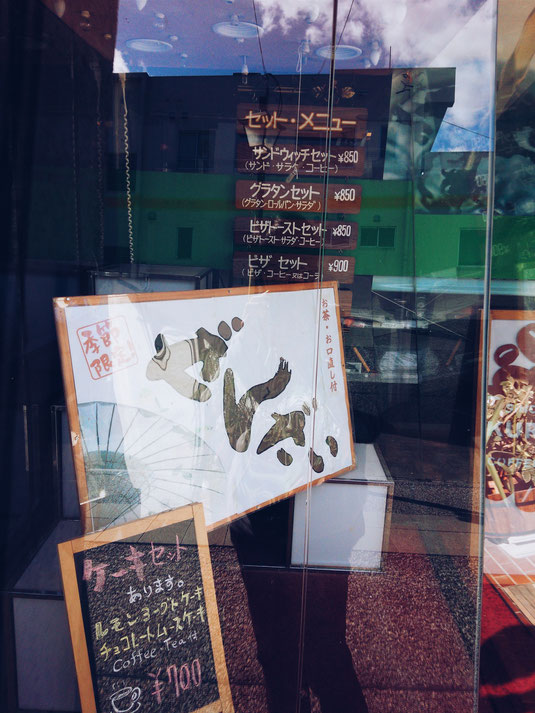 セット・メニュー
サンドウィッチセット ¥850
(サンド・サラダ・コーヒー)
グラタンセット ¥850
(グラタン・ロールパン・サラダ)
ピザトーストセット ¥850
(ピザトースト・サラダ・コーヒー)
ピザ セット ¥900
(ピザ・コーヒー又はコーラ)
季節
限定
お茶・お口直し付
ぜんざい
ケーキセット
あります。
レモンヨーグルトケーキ
チョコレートムースケーキ
Coffee・Tea付
¥700